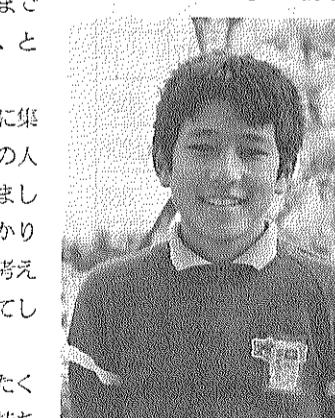 まご
、と
に集
の人
まし
かり
考え
てし
たく